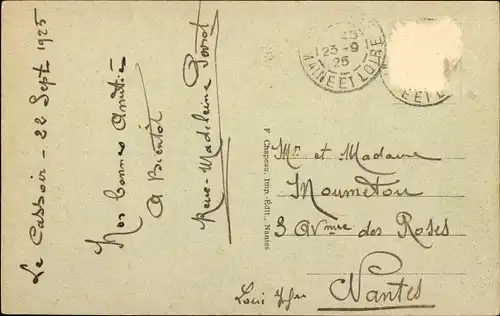 Le Cassoir - 22 Sept 1925
Nos bonnes Amitiés
A Bientôt
René-Madeleine
23-9
25
MAINE ET LOIRE
F. Chapeau, Imp.-Édit., Nantes
Mr et Madame
Moumetou
3 Avnue des Roses
Nantes
Loire Infre